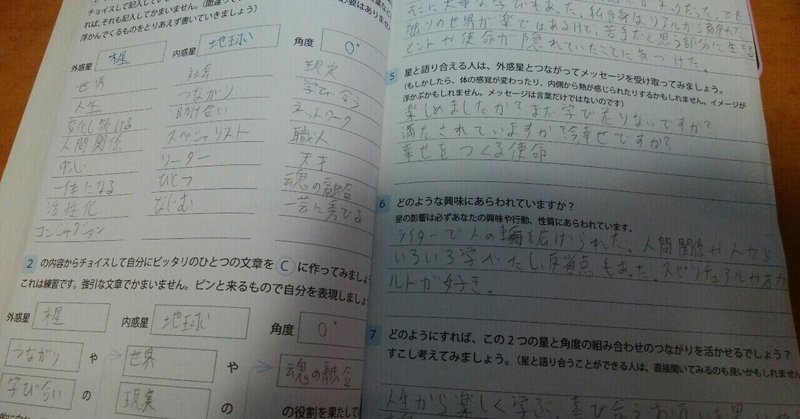 チョイスして記入してい
れば、それも記入してかまいません。（間違って
浮かんでくるものをとりあえず書いていきましょう）
必要はありませ
外惑星
内惑星 地球
角度 0°
世界 社会 現実
人生 つながり 学び合う
変化し続ける 助け合い ネットワーク
人間関係 スペシャリスト 職人
中心 リーダー 天才
一体になる ひとつ 魂の融合
活性化 なじむ 一芸に秀でる
コンジャンクション
2 の内容からチョイスして自分にピッタリのひとつの文章を C に作ってみましょ
これは練習です。強引な文章でかまいません。ピンと来るもので自分を表現しましょ
外惑星
内惑星 地球
角度 0°
つながり や 世界 や 魂の融合
学び合い の 現実 の
の役割を果たして
大事な学びもあった。私自身はリアルから
独りの世界が楽ではあるけど、苦手だと思う部分に生きる
ヒントや使命が隠れていたことに気づけた。
5 星と語り合える人は、外惑星とつながってメッセージを受け取ってみましょう。
（もしかしたら、体の感覚が変わったり、内側から熱が感じられたりするかもしれません。イメージが
浮かぶかもしれません。メッセージは言葉だけではないのです）
楽しめましたか？まだ学び足りないですか？
満たされていますか？今幸せですか？
幸せをつくる使命
6 どのような興味にあらわれていますか？
星の影響は必ずあなたの興味や行動、性質にあらわれています。
ライターで人の輪も広げられた、人間関係や人から
いろいろ学べたし反省点もあった。スピリチュアルやオカ
ルトが好き。
7 どのようにすれば、この2つの星と角度の組み合わせのつながりを活かせるでしょう？
すこし考えてみましょう。（星と語り合うことができる人は、直接聞いてみるのも良いかもしれません
人生から楽しく学ぶ、喜び合う